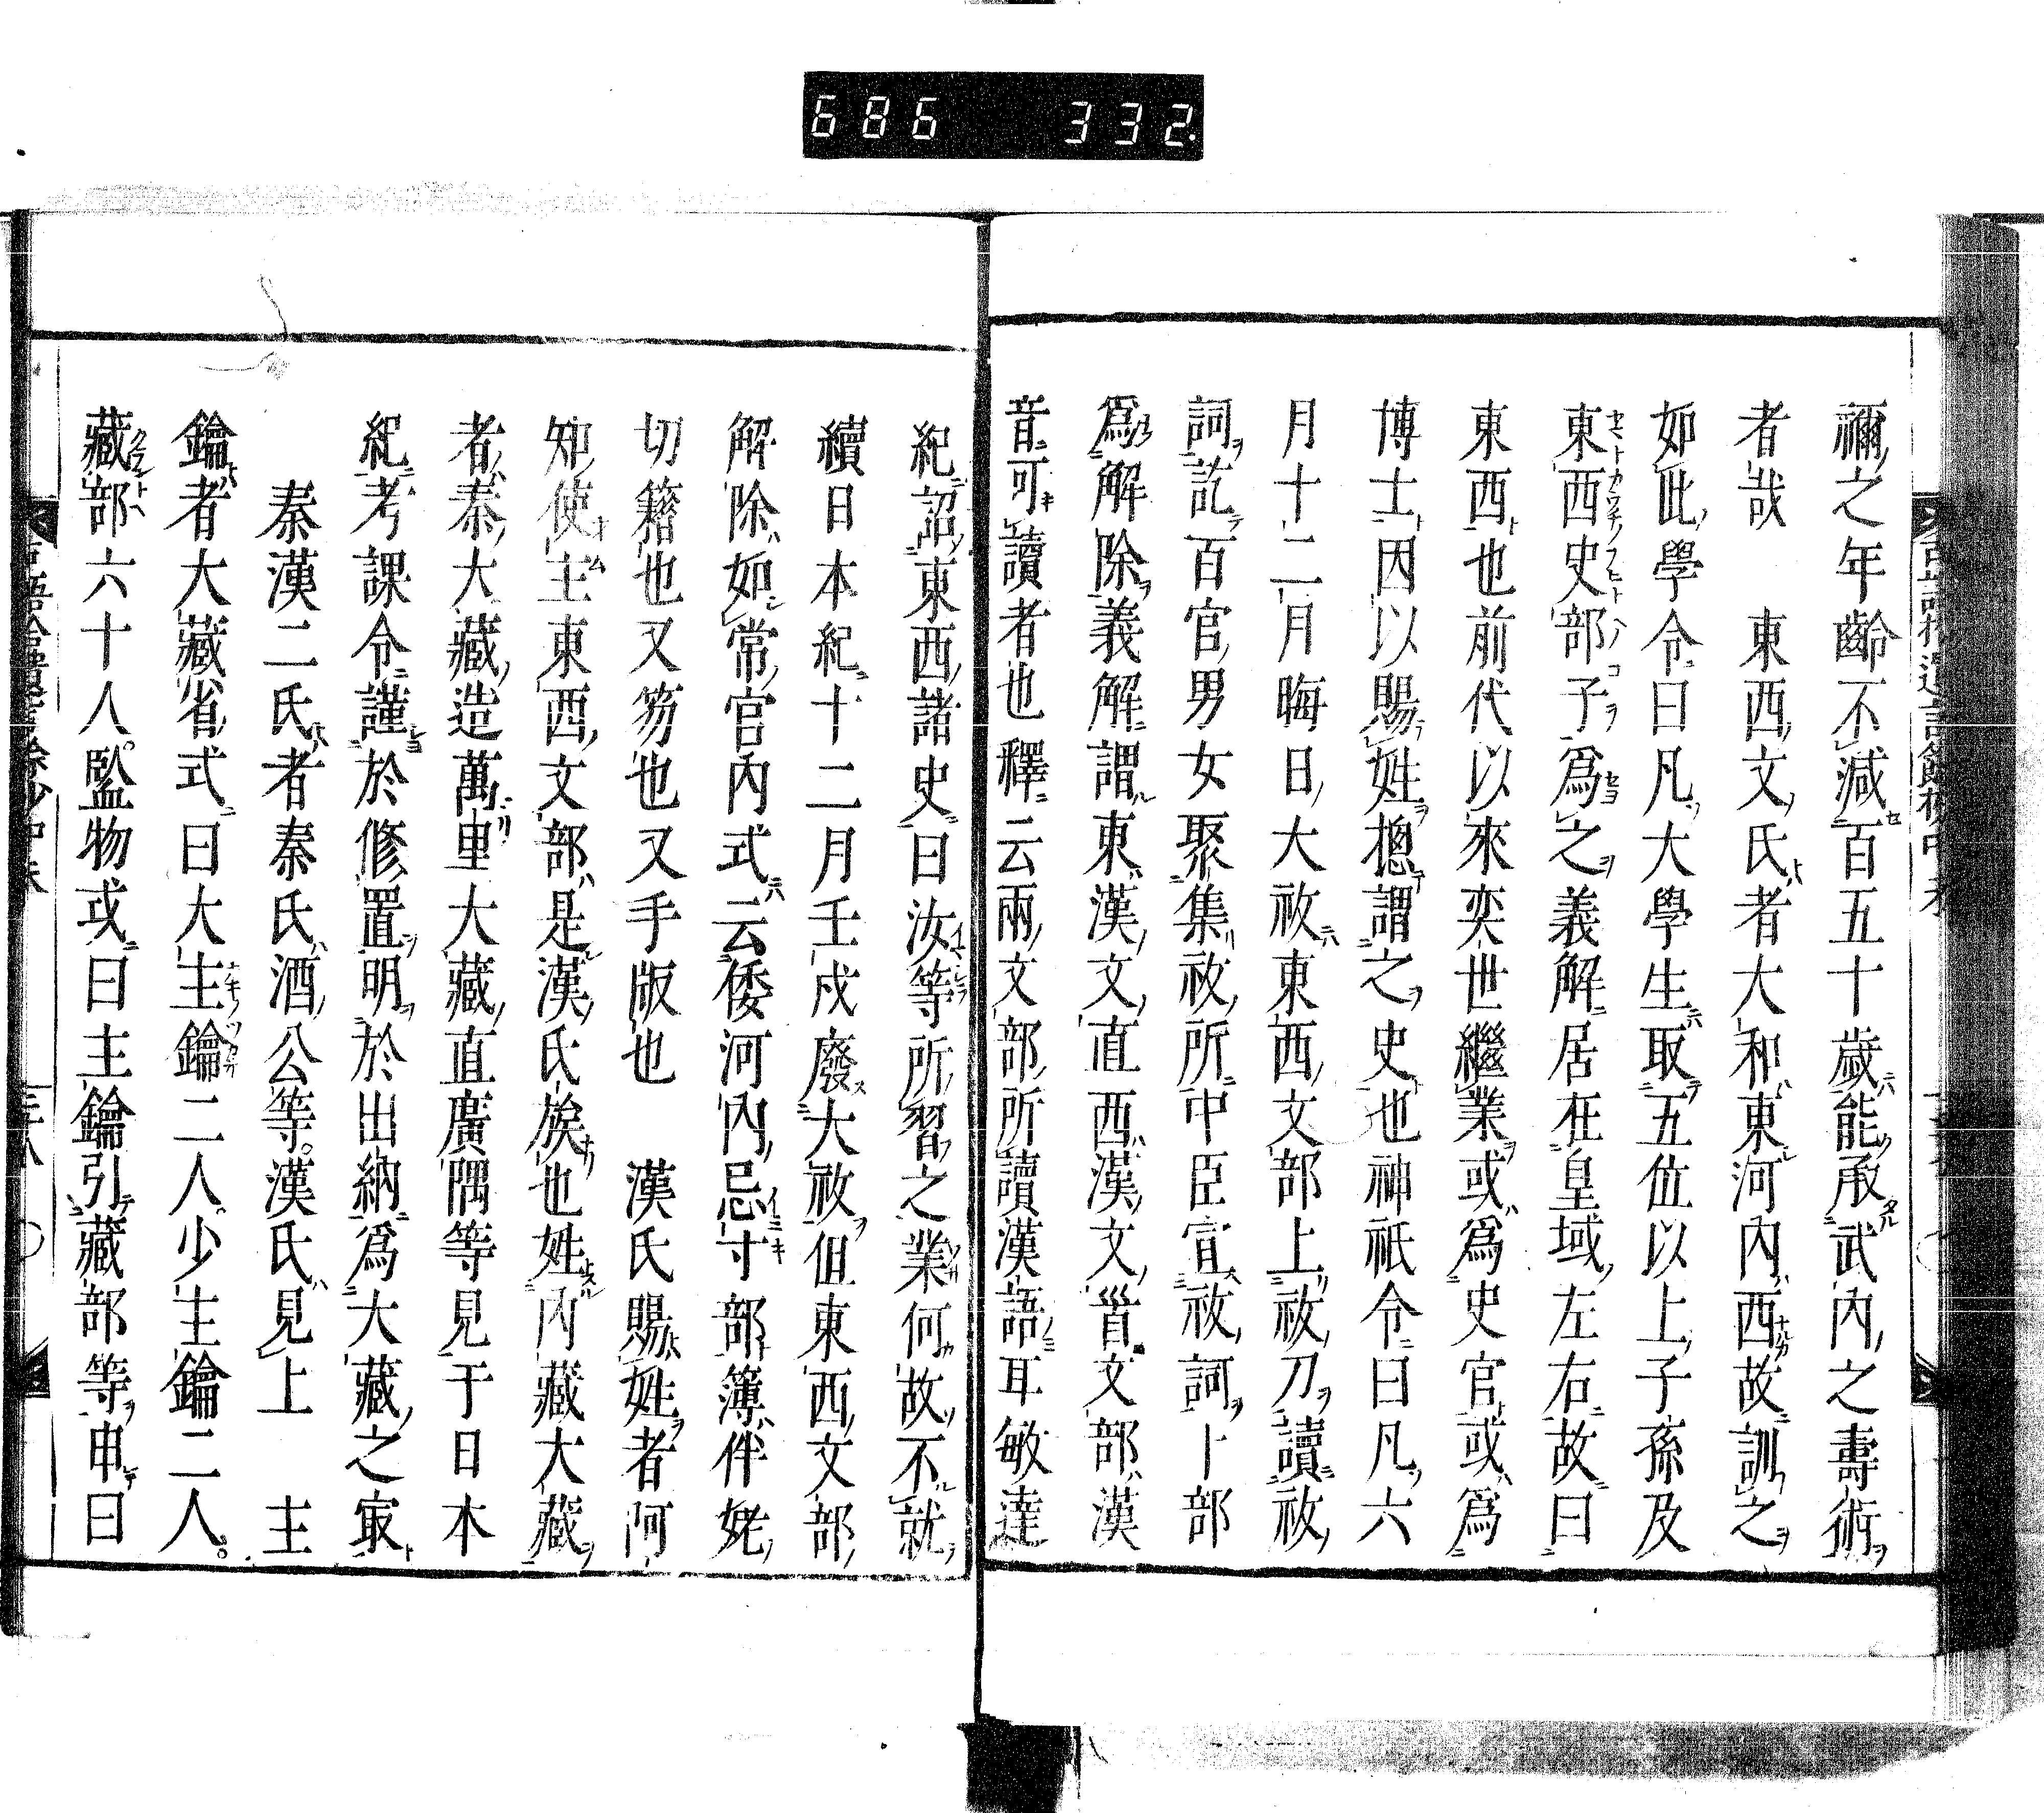 686 332
禰之年齡不減百五十歲能承武內之壽術
者哉　東西文氏者大和東河內西故訓之
如此學令曰凡大學生取五位以上子孫及
東西史部子爲之義解居在皇域左右故曰
東西也前代以來奕世繼業或爲史官或爲
博士因以賜姓摠謂之史也神祇令曰凡六
月十二月晦日大祓東西文部上祓刀讀祓
詞訖百官男女聚集祓所中臣宣祓詞卜部
爲解除義解謂東漢文直西漢文首文部漢
音可讀者也釋云兩文部所讀漢語耳敏達
紀詔東西諸史曰汝等所習之業何故不就
續日本紀十二月壬戌廢大祓但東西文部
解除如常官內式云倭河內忌寸部簿伴姥
切籍也又笏也又手版也　漢氏賜姓者阿
知使主東西文部是漢氏族也姓內藏大藏
者秦大藏造萬里大藏直廣隅等見于日本
紀考課令謹於修置明於出納爲大藏之㝡
秦漢二氏者秦氏酒公等漢氏見上　主
鑰者大藏省式曰大主鑰二人少主鑰二人
藏部六十人監物或曰主鑰引藏部等申曰